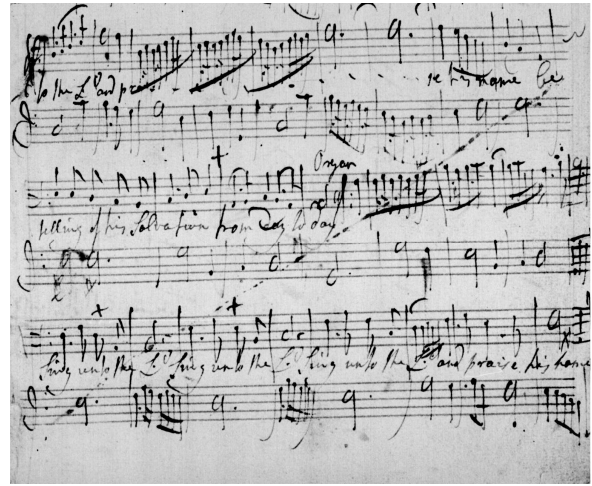 to the Ld and pra - - - - - - se his name be
Organ
telling of his Salvation from Day to day
Sing unto the Ld Sing unto the Ld Sing unto the Ld and praise his name